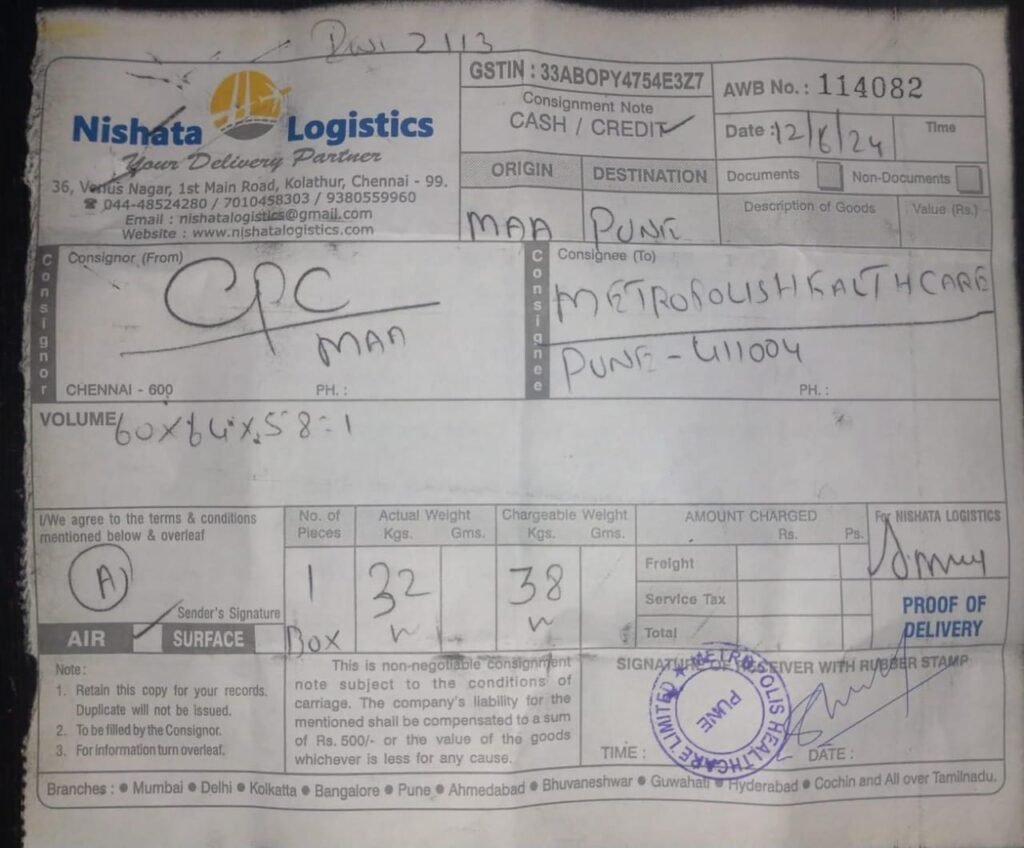 2113
Nishata Logistics
Your Delivery Partner
36, Venus Nagar, 1st Main Road, Kolathur, Chennai - 99.
☎ 044-48524280 / 7010458303 / 9380559960
Email : nishatalogistics@gmail.com
Website : www.nishatalogistics.com
GSTIN : 33ABOPY4754E3Z7
Consignment Note
CASH / CREDIT ✓
AWB No. : 114082
Date : 12/6/24 Time
ORIGIN DESTINATION
MAA PUNE
Documents Non-Documents
Description of Goods Value (Rs.)
Consignor
Consignor (From)
CPC
MAA
CHENNAI - 600 PH. :
Consignee
Consignee (To)
METROPOLIS HEALTHCARE
PUNE - 411004
PH. :
VOLUME 60 x 64 x 58 = 1
I/We agree to the terms & conditions
mentioned below & overleaf
A
Sender's Signature
AIR ✓ SURFACE
No. of
Pieces
1
Box
Actual Weight
Kgs. Gms.
32
Chargeable Weight
Kgs. Gms.
38
AMOUNT CHARGED
Rs. Ps.
Freight
Service Tax
Total
For NISHATA LOGISTICS
PROOF OF
DELIVERY
Note :
1. Retain this copy for your records.
Duplicate will not be issued.
2. To be filled by the Consignor.
3. For information turn overleaf.
This is non-negotiable consignment
note subject to the conditions of
carriage. The company's liability for the
mentioned shall be compensated to a sum
of Rs. 500/- or the value of the goods
whichever is less for any cause.
SIGNATURE OF RECEIVER WITH RUBBER STAMP
METROPOLIS HEALTHCARE LIMITED ★
PUNE
TIME : DATE :
Branches : ● Mumbai ● Delhi ● Kolkatta ● Bangalore ● Pune ● Ahmedabad ● Bhuvaneshwar ● Guwahati ● Hyderabad ● Cochin and All over Tamilnadu.